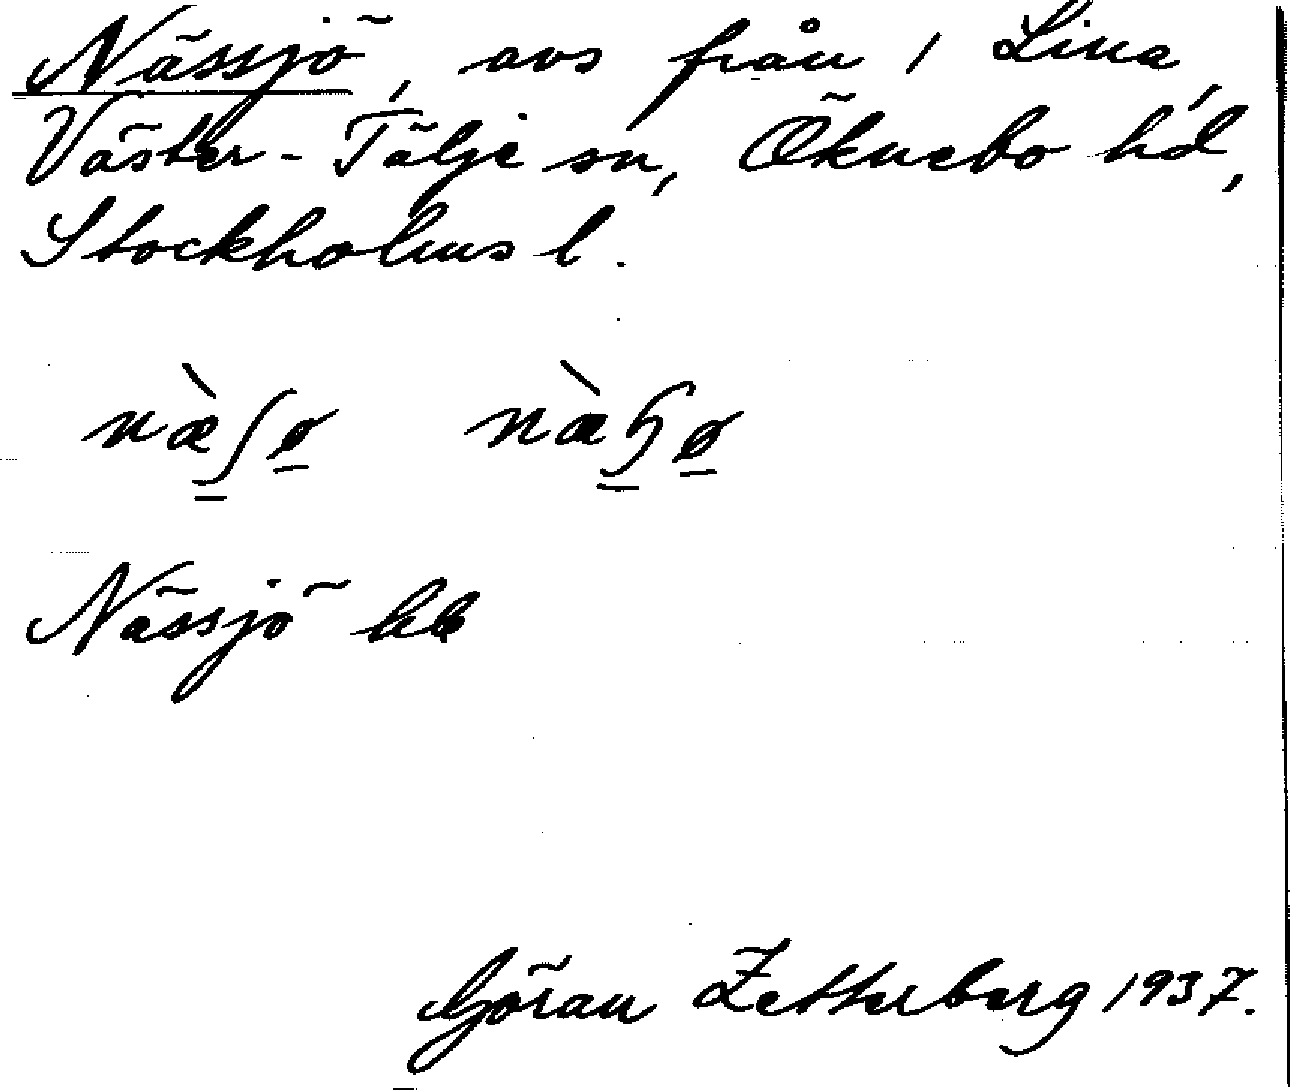 Nässjö, avs från 1 Lina,
Väster-Tälje sn, Öknebo hd,
Stockholms l.
næ̀ʃø̱ næ̀ꞕø̱
Nässjö
Göran Zetterberg 1937.